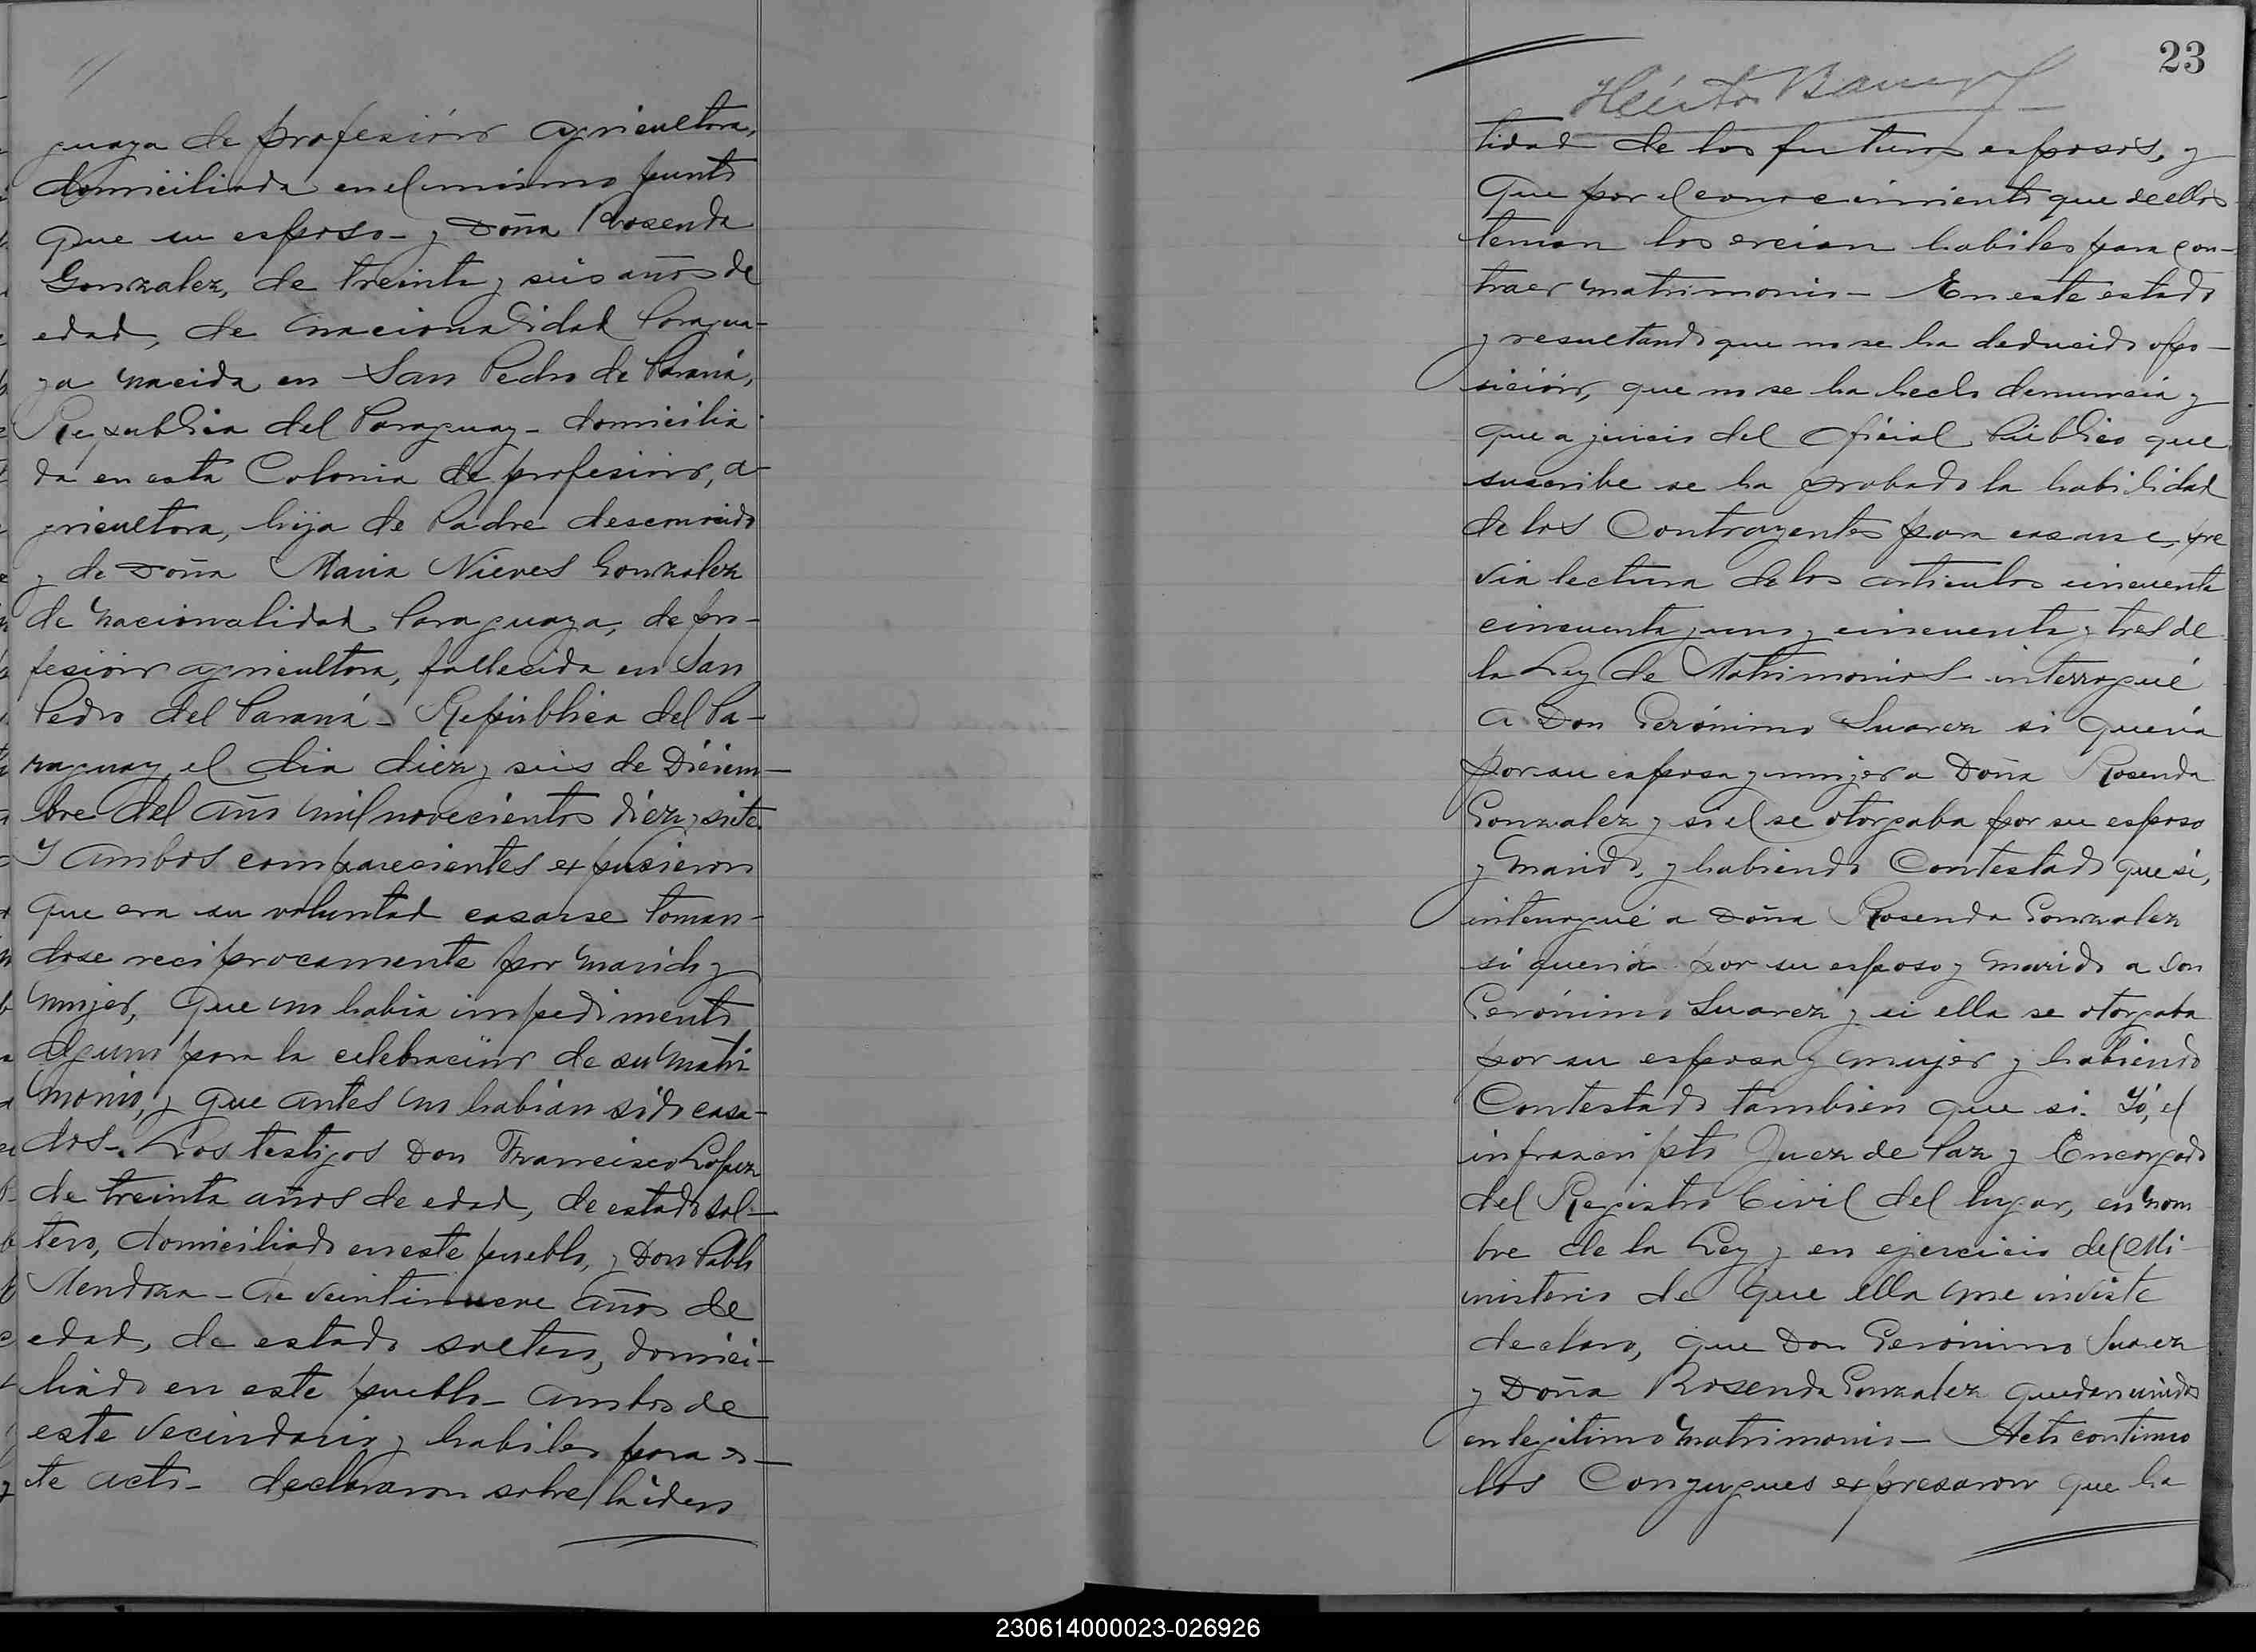 guaya de profesión agricultora,
domiciliada en el mismo punto
que su esposo - y Doña Rosenda
Gonzalez, de treinta y seis años de
edad, de nacionalidad Paragua-
ya nacida en San Pedro de Paraná,
República del Paraguay - domicilia
da en esta Colonia de profesión, a-
gricultora, hija de Padre desconocido
y de Doña Maria Nieves Gonzalez
de nacionalidad Paraguaya, de pro-
fesión agricultora, fallecida en San
Pedro del Paraná - República del Pa-
raguay el dia diez y seis de Diciem-
bre del año mil novecientos diez y siete.
Y ambos comparecientes expusieron
que era su voluntad casarse toman-
dose reciprocamente por marido y
mujer, que no habia impedimento
alguno para la celebración de su matri
monio, y que antes no habian sido casa-
dos - Los testigos Don Francisco Lopez
de treinta años de edad, de estado sol-
tero, domiciliado en este pueblo, y Don Pablo
Mendoza - de veintinueve años de
edad, de estado soltero, domici-
liado en este pueblo - ambos de
este vecindario y habiles para es-
te acto - declararon sobre la iden
23
Héctor
tidad de los futuros esposos, y
que por el conocimiento que de ellos
tenian los creian habiles para con-
traer matrimonio - En este estado
y resultando que no se ha deducido opo-
sición, que no se ha hecho denuncia y
que a juicio del Oficial Público que
suscribe se ha probado la habilidad
de los Contrayentes para casarse, pre
via lectura de los articulos cincuenta
cincuenta y uno y cincuenta y tres de
la Ley de Matrimonios - interrogué
a Don Gerónimo Suarez si queria
por su esposa y mujer a Doña Rosenda
Gonzalez y si el se otorgaba por su esposo
y marido, y habiendo Contestado que si,
interrogué a Doña Rosenda Gonzalez
si queria por su esposo y marido a Don
Gerónimo Suarez y si ella se otorgaba
por su esposa y mujer y habiendo
Contestado tambien que si. Yó, el
infrascripto Juez de Paz y Encargado
del Registro Civil del lugar, en nom
bre de la Ley y en ejercicio del Mi-
nisterio de que ella me inviste
declaro, que Don Gerónimo Suarez
y Doña Rosenda Gonzalez quedan unidos
en legitimo matrimonio - Acto continuo
los Conyugues expresaron que ha
230614000023-026926